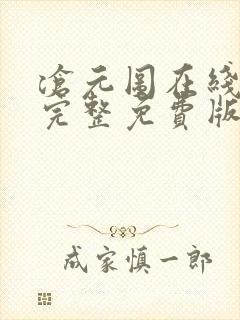 滄元圖在綫
完整免費版
成家慎一郎